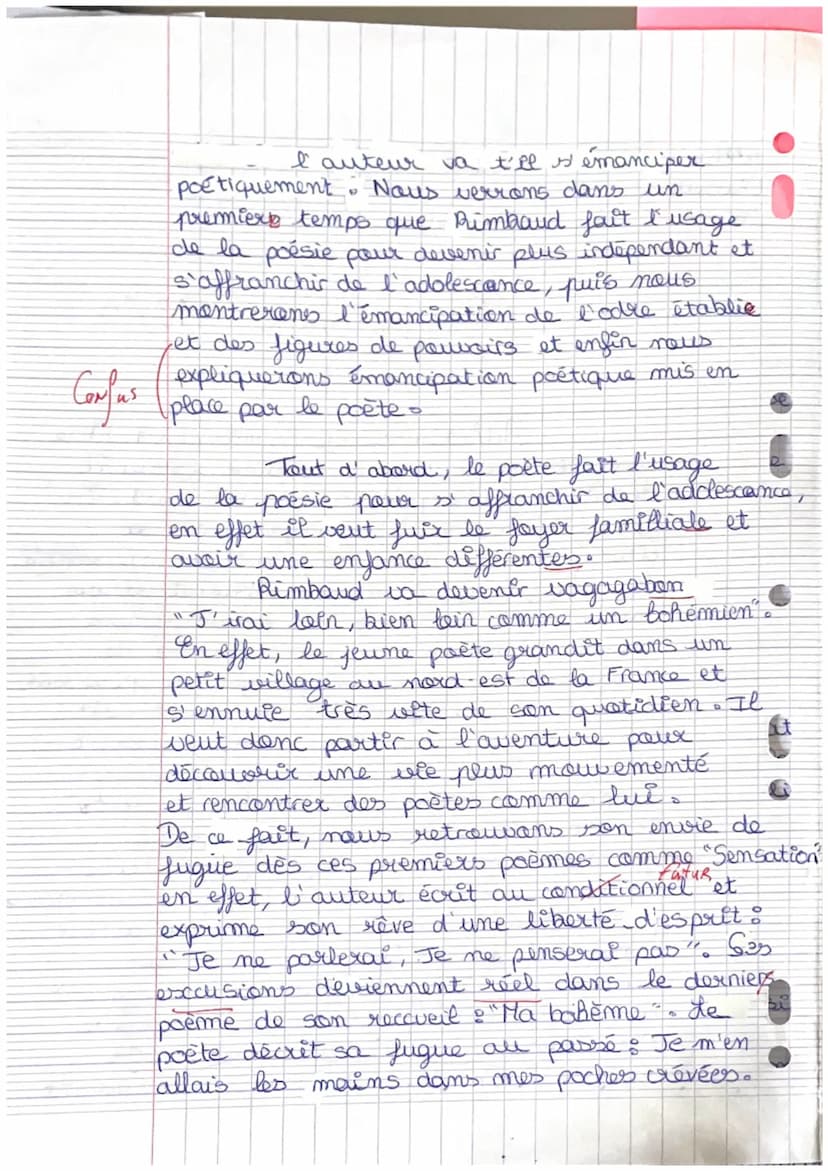 l'auteur va t'il s'émanciper
poétiquement. Nous verrons dans un
premiere temps que Rimbaud fait l'usage
de la poésie pour devenir plus indépendant et
s'affranchir de l'adolescance, puis nous
montrerons l'émancipation de l'odre établie
et des figures de pouvoirs et enfin nous
expliquerons émancipation poétique mis en
Confus
place par le poète.
Tout d'abord, le poète fait l'usage
de la poésie pour s'affranchir de l'adolescance,
en effet il veut fuir le foyer familliale et
avoir une enfance différentes.
Rimbaud va devenir vagagabon
"J'irai loin, bien loin comme un bohémien".
En effet, le jeune poète grandit dans un
petit village au nord-est de la France et
s'ennuie très vite de son quotidien. Il
veut donc partir à l'aventure pour
découvrir une vie plus mouvementé
et rencontrer des poètes comme lui.
De ce fait, nous retrouvons son envie de
fugue dès ces premiers poèmes comme "Sensation"
futur
en effet, l'auteur écrit au conditionnel et
exprime son rêve d'une liberté d'esprit :
"Je ne parlerai, Je ne penserai pas". Ses
excusions deviennent réel dans le derniers
poème de son reccueil : "Ma bohème". Le
poète décrit sa fugue au passé : Je m'en
allais les mains dans mes poches crevées.